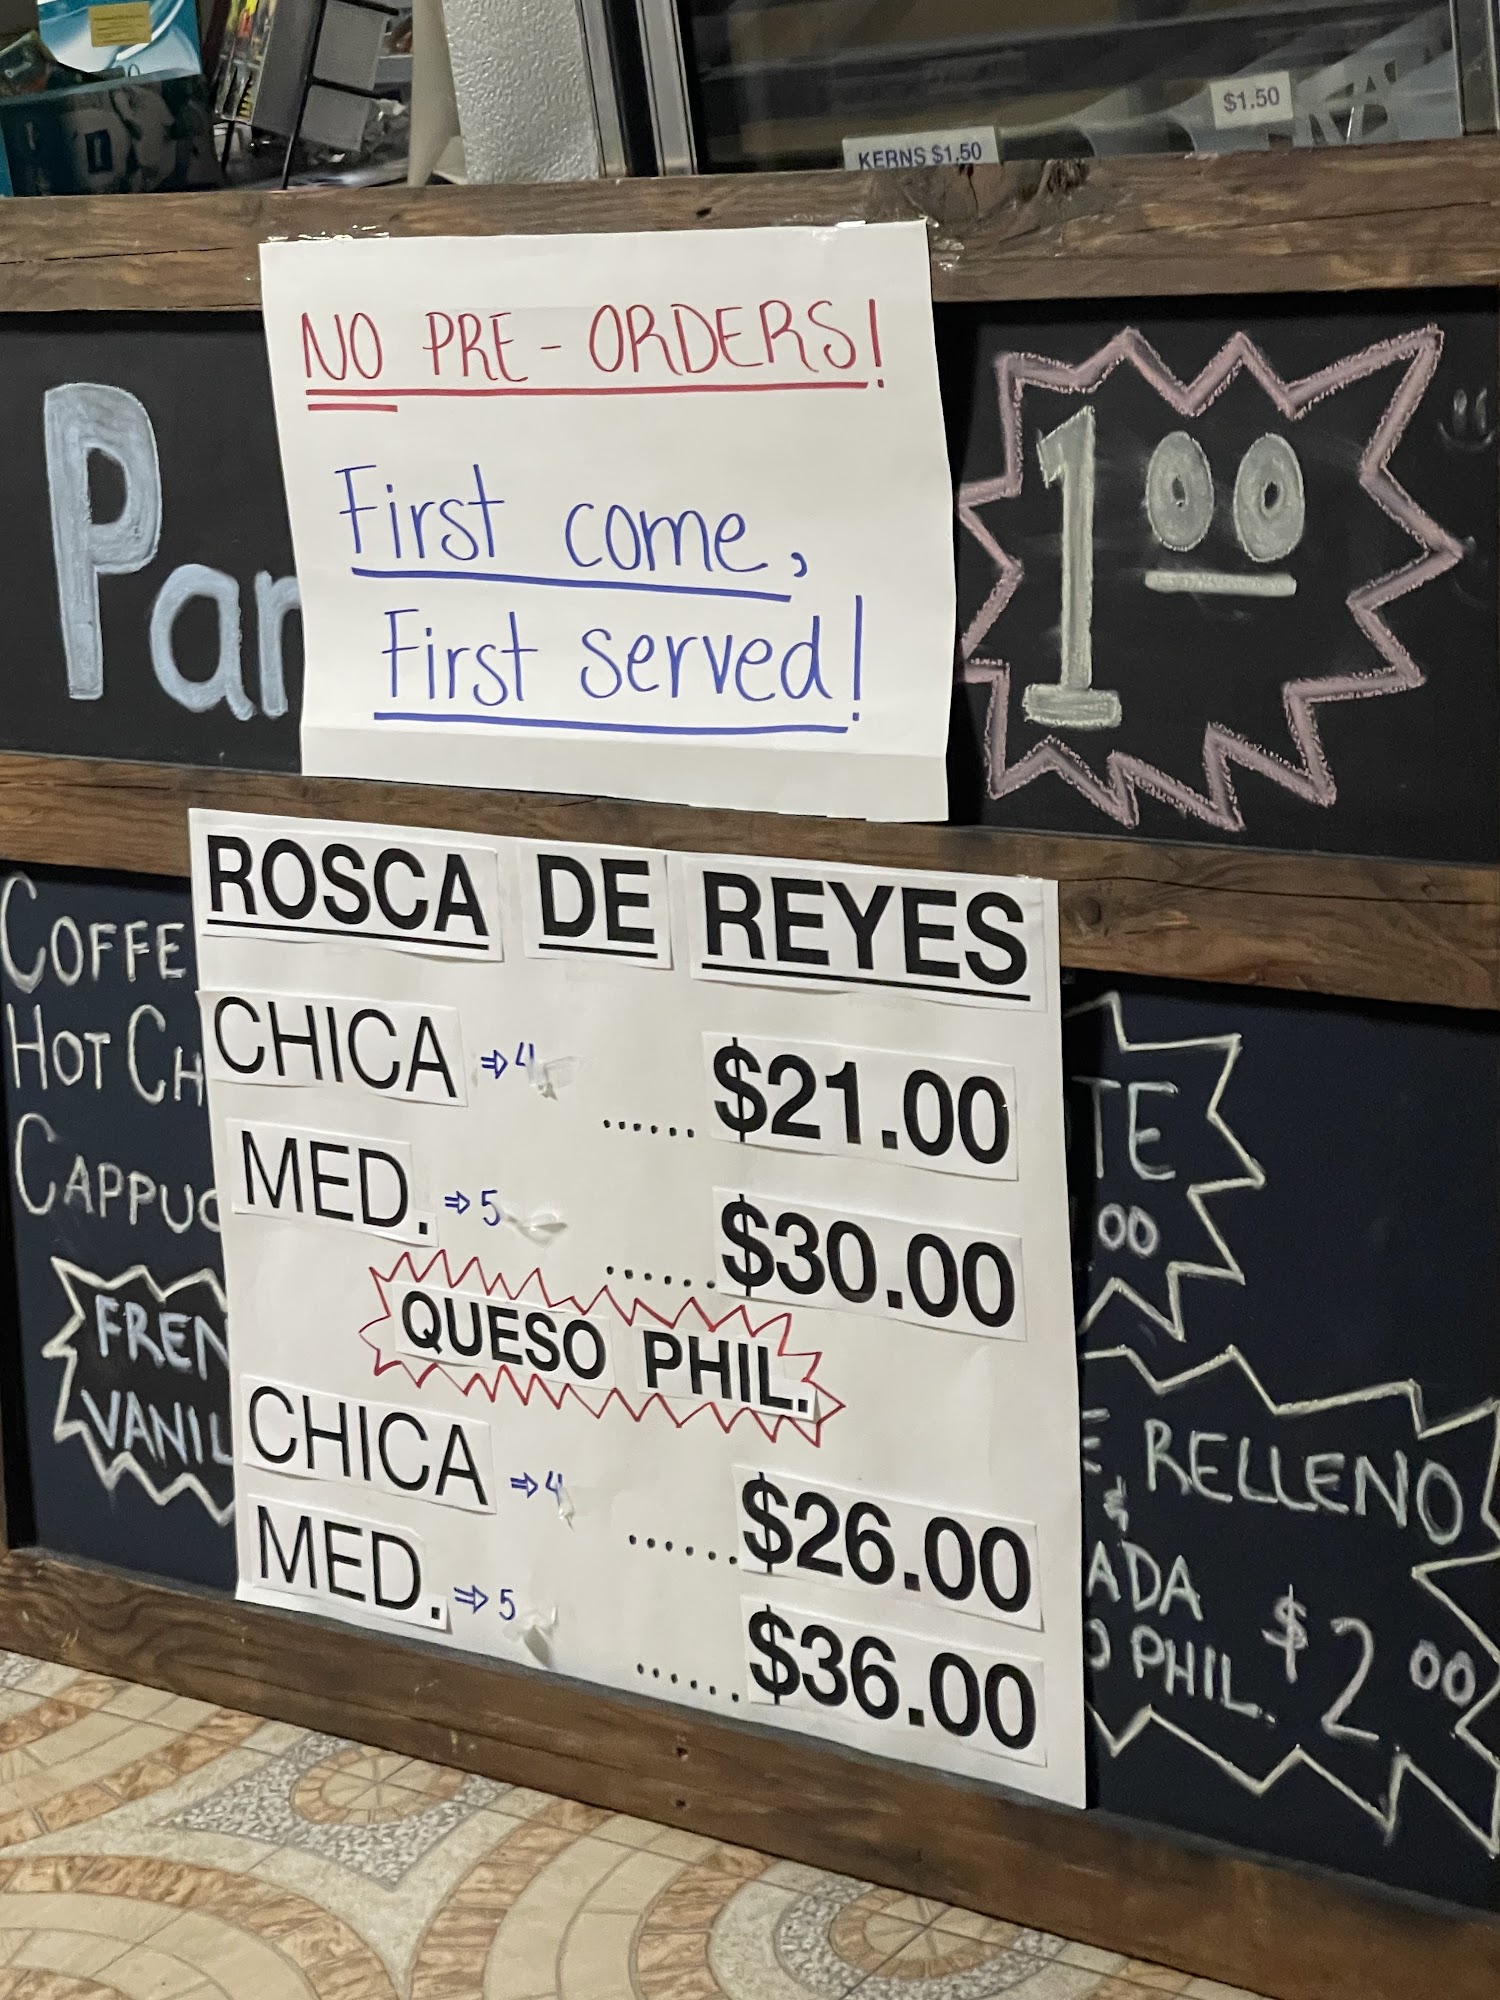 $1.50
KERNS $1.50
NO PRE-ORDERS!
First come,
First served!
Pan
1 00
ROSCA DE REYES
CHICA ⇒ 4 ...... $21.00
MED. ⇒ 5 ...... $30.00
QUESO PHIL.
CHICA ⇒ 4 ...... $26.00
MED. ⇒ 5 ...... $36.00
COFFE
HOT CH
CAPPUC
FREN
VANIL
TE
00
E RELLENO
&
ADA
O PHIL. $2 00